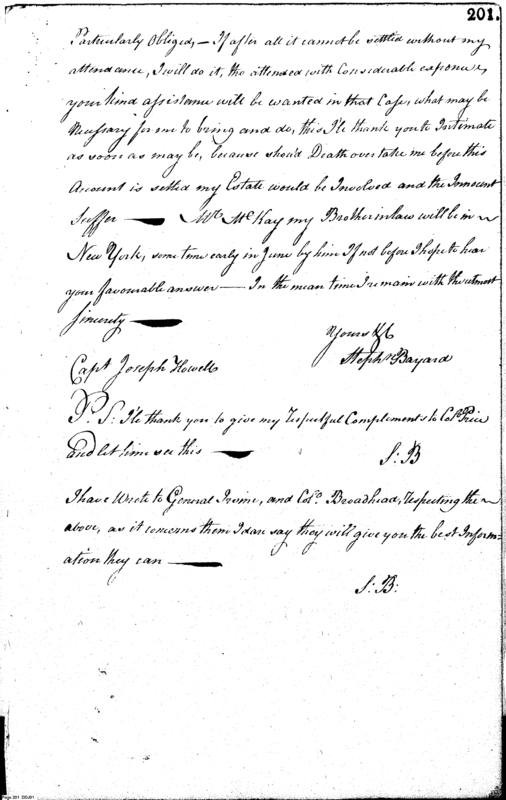 201.
Particularly Obliged, — If after all it cannot be settled without my
attendance, I will do it, tho attended with Considerable expence,
your kind assistance will be wanted in that Case, what may be
Necessary for me to bring and do, this I'le thank you to Intimate
as soon as may be, because shou'd Death overtake me before this
Account is setled my Estate would be Involved and the Innocent
Suffer — Mr. McKay my Brother in law will be in
New York, some time early in June by him If not before I hope to hear
your favourable answer — In the mean time I remain with the utmost
Sincerity —
Yours &c
Stephn. Bayard
Capt Joseph Howell
P. S: I'le thank you to give my respectful Complements to Colo.
and let him see this —
S: B
I have Wrote to General Irvine, and Colo. Broadhead, respecting the
above, as it concerns them I dare say they will give you the best Inform=
ation they can —
S: B:
Page 201 DDJ01